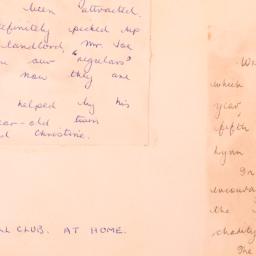 been attracted.
definitely picked up
landlord, Mr. Joe
our "regulars"
now they are
helped by his
year-old twins
Christine.
LL CLUB. AT HOME.
which
year,
fifth
Lynn
In
encoura
the
charity
The